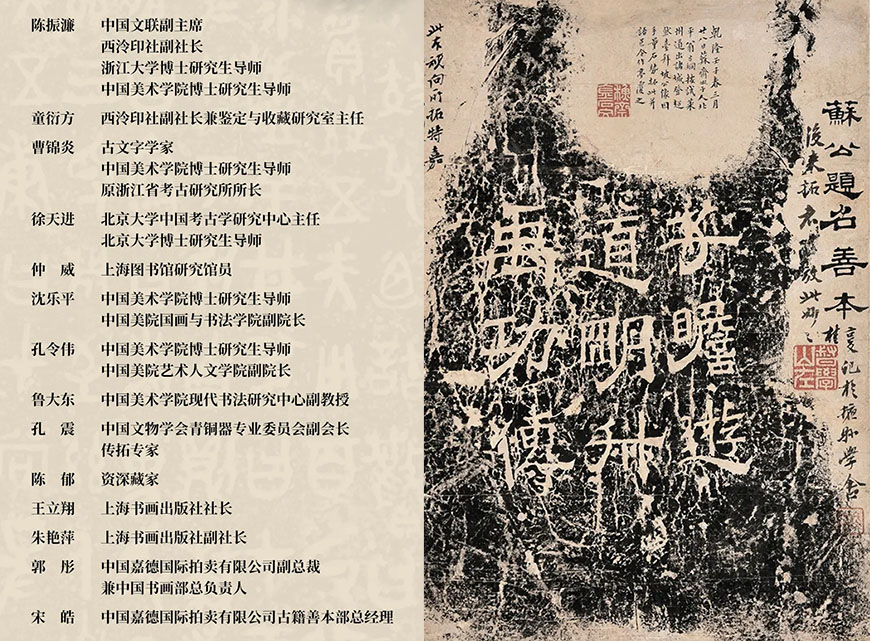 陈振濂 中国文联副主席
西泠印社副社长
浙江大学博士研究生导师
中国美术学院博士研究生导师
童衍方 西泠印社副社长兼鉴定与收藏研究室主任
曹锦炎 古文字学家
中国美术学院博士研究生导师
原浙江省考古研究所所长
徐天进 北京大学中国考古学研究中心主任
北京大学博士研究生导师
仲 威 上海图书馆研究馆员
沈乐平 中国美术学院博士研究生导师
中国美院国画与书法学院副院长
孔令伟 中国美术学院博士研究生导师
中国美院艺术人文学院副院长
鲁大东 中国美术学院现代书法研究中心副教授
孔 震 中国文物学会青铜器专业委员会副会长
传拓专家
陈 郁 资深藏家
王立翔 上海书画出版社社长
朱艳萍 上海书画出版社副社长
郭 彤 中国嘉德国际拍卖有限公司副总裁
兼中国书画部总负责人
宋 皓 中国嘉德国际拍卖有限公司古籍善本部总经理
蘇公題名善本
乾隆壬子春三月
子瞻遊
道明舛
禹功傳